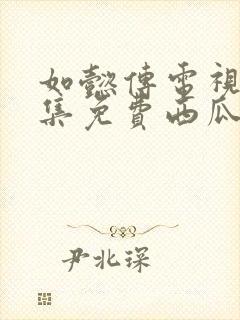 如懿傳電視
集免費西瓜
尹北琛